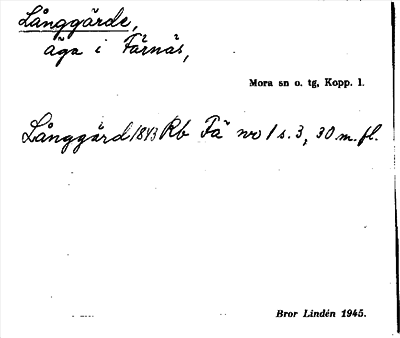 Långgärde,
äga i Färnäs,
Mora sn o. tg, Kopp. l.
Långgärd 1843 Rb Fä nr 1 s. 3, 30 m. fl.
Bror Lindén 1945.